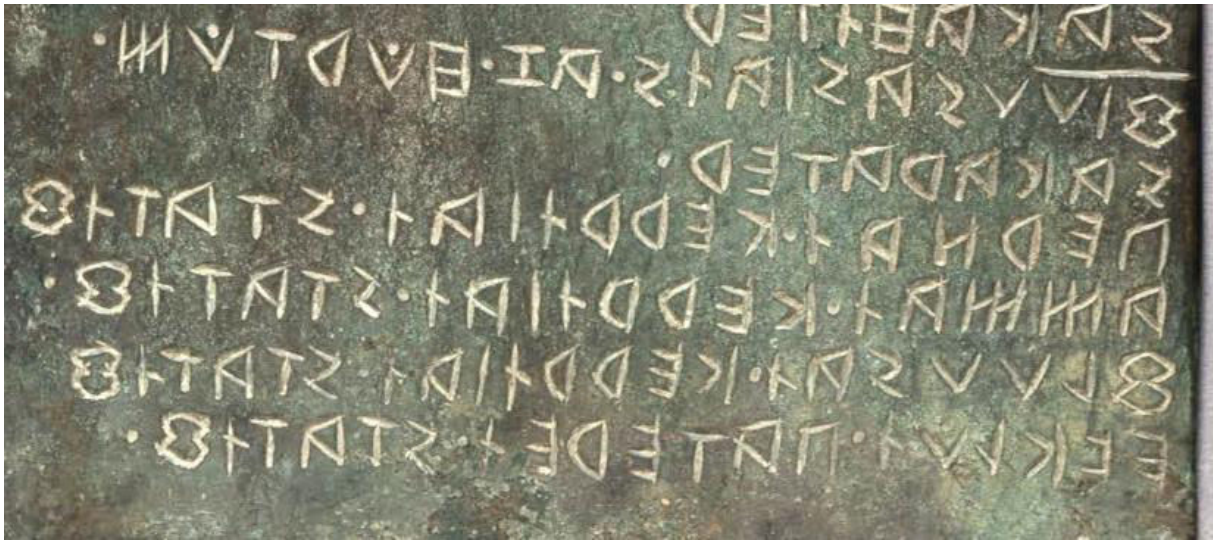 𐌔𐌀𐌊𐌀𐌇𐌝𐌕𐌄𐌓
𐌚𐌉𐌖𐌖𐌔𐌀𐌔𐌉𐌀𐌝𐌔·𐌀𐌆·𐌇𐌞𐌓𐌕𐌞𐌌·
𐌔𐌀𐌊𐌀𐌓𐌀𐌕𐌄𐌓·
𐌐𐌄𐌓𐌍𐌀𐌝·𐌊𐌄𐌓𐌓𐌝𐌉𐌀𐌝·𐌔𐌕𐌀𐌕𐌝𐌚
𐌀𐌌𐌌𐌀𐌝·𐌊𐌄𐌓𐌓𐌝𐌉𐌀𐌝·𐌔𐌕𐌀𐌕𐌝𐌚·
𐌚𐌋𐌖𐌖𐌔𐌀𐌝·𐌊𐌄𐌓𐌓𐌝𐌉𐌀𐌝 𐌔𐌕𐌀𐌕𐌝𐌚
𐌄𐌅𐌊𐌋𐌞𐌝·𐌐𐌀𐌕𐌄𐌓𐌄𐌝 𐌔𐌕𐌀𐌕𐌝𐌚·